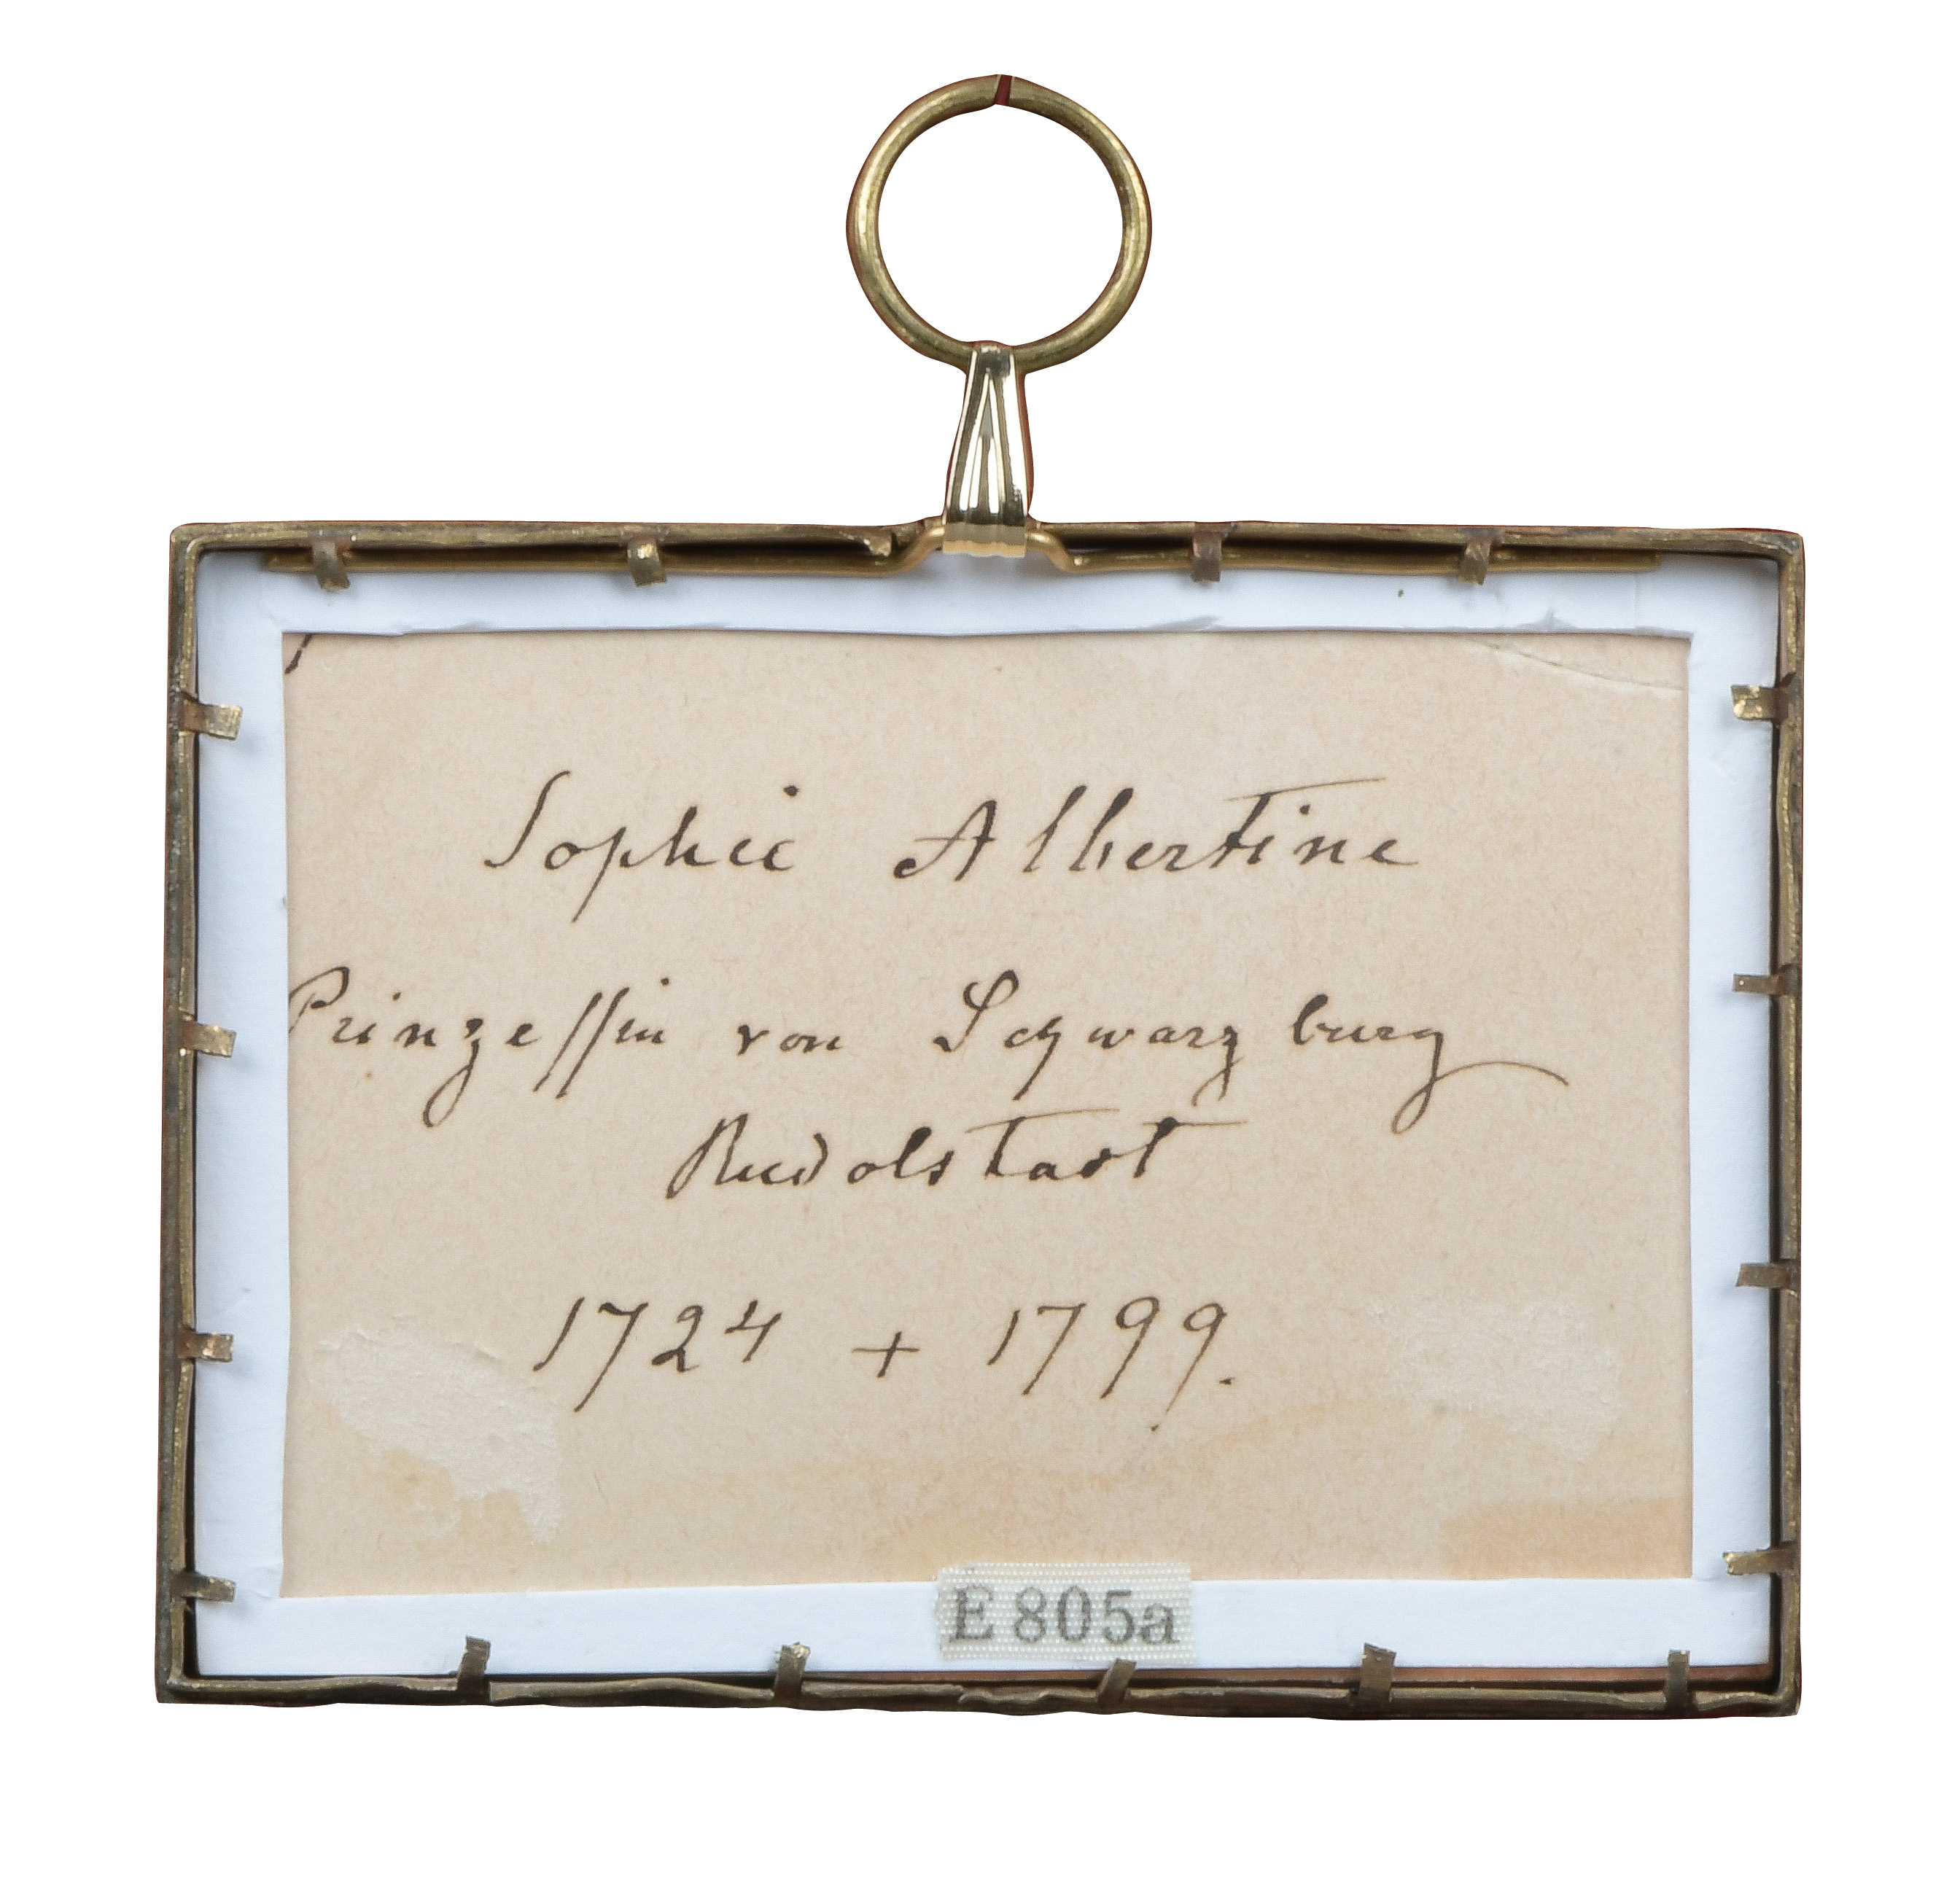 Sophie Albertine
Prinzessin von Schwarzburg
Rudolstadt
1724 + 1799.
E 805a